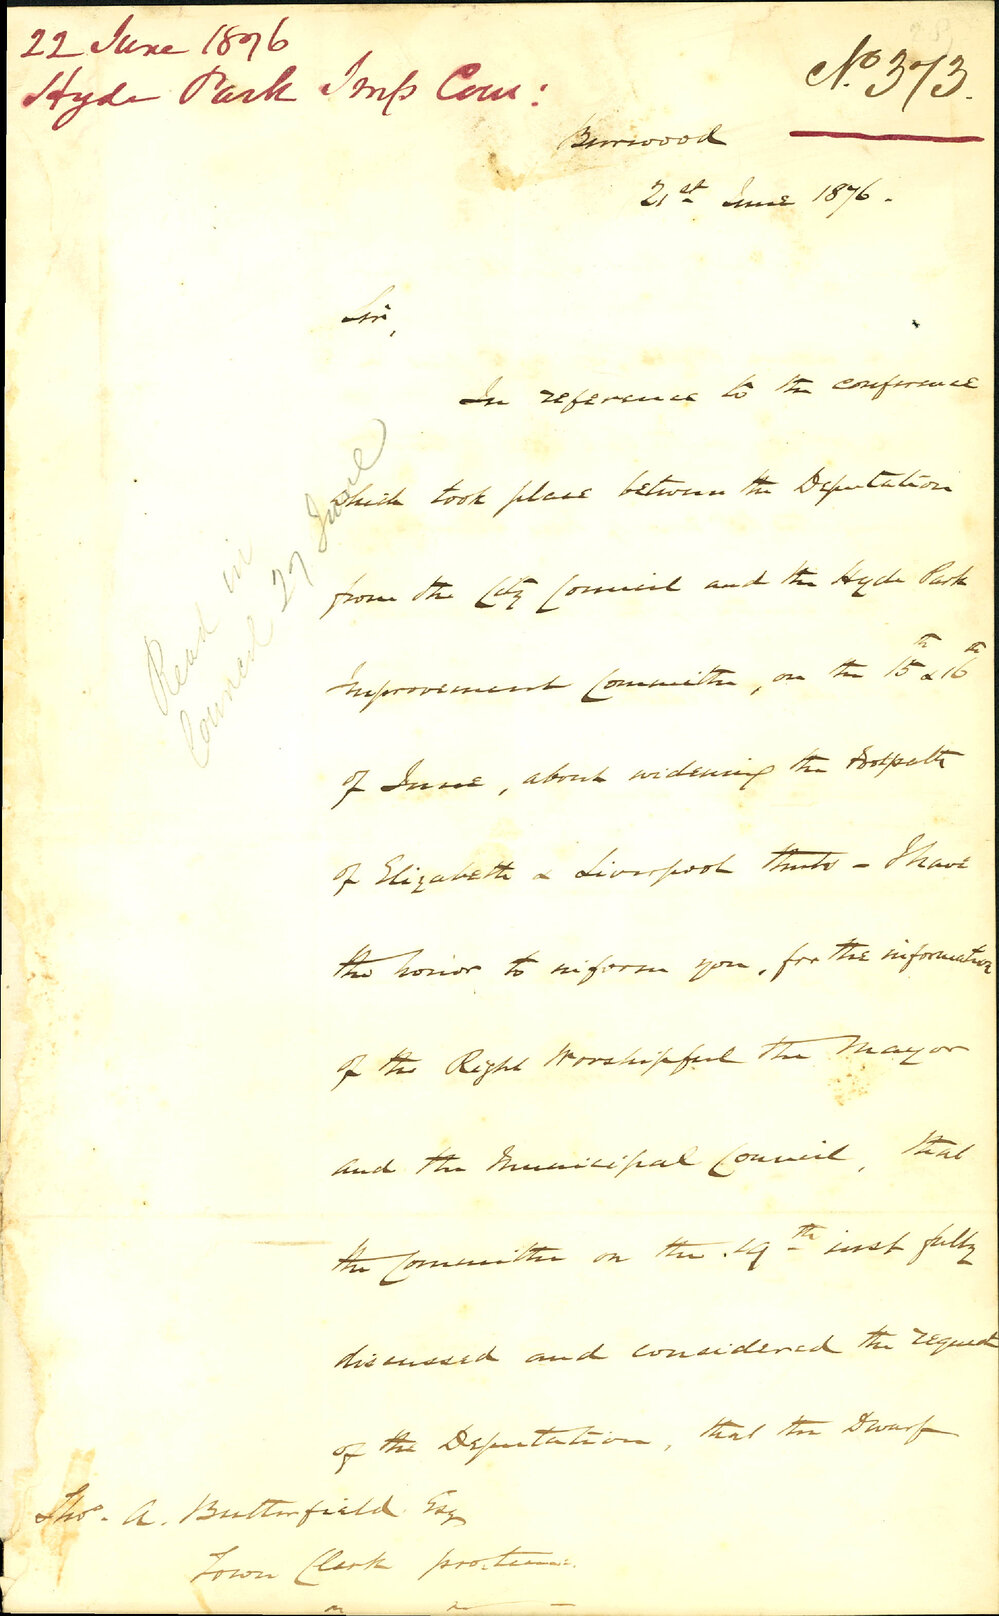 22 June 1876
Hyde Park Imp Com:
No. 373.
Burwood
21st June 1876.
Read in
Council 27 June
Sir,
In reference to the conference
which took place between the Deputation
from the City Council and the Hyde Park
Improvement Committee, on the 15th & 16th
of June, about widening the footpath
of Elizabeth & Liverpool Streets - I have
the honor to inform you, for the information
of the Right Worshipful the Mayor
and the Municipal Council, that
the Committee on the 19th inst fully
discussed and considered the request
of the Deputation, that the Dwarf
Thos. A. Butterfield Esq
Town Clerk pro. tem.